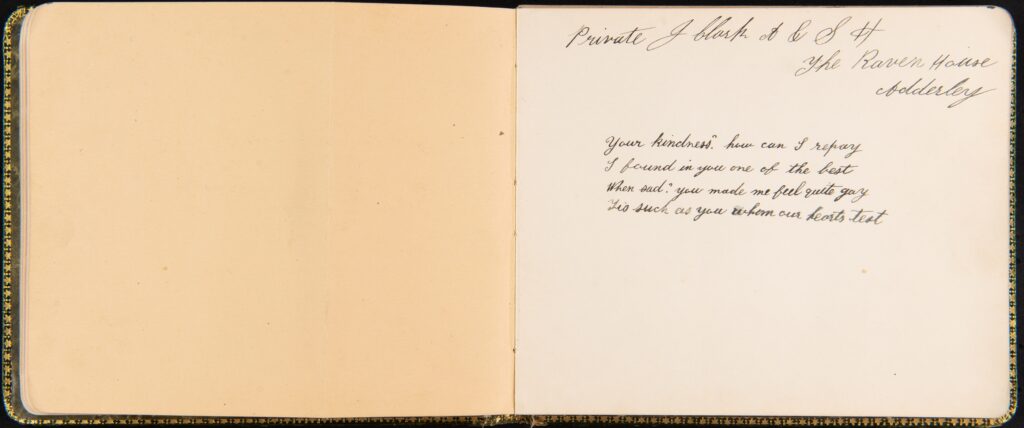 Private J Clark A E S H
The Raven House
Adderley
Your kindness". how can I repay
I found in you one of the best
When sad". you made me feel quite gay
Tis such as you whom our hearts test